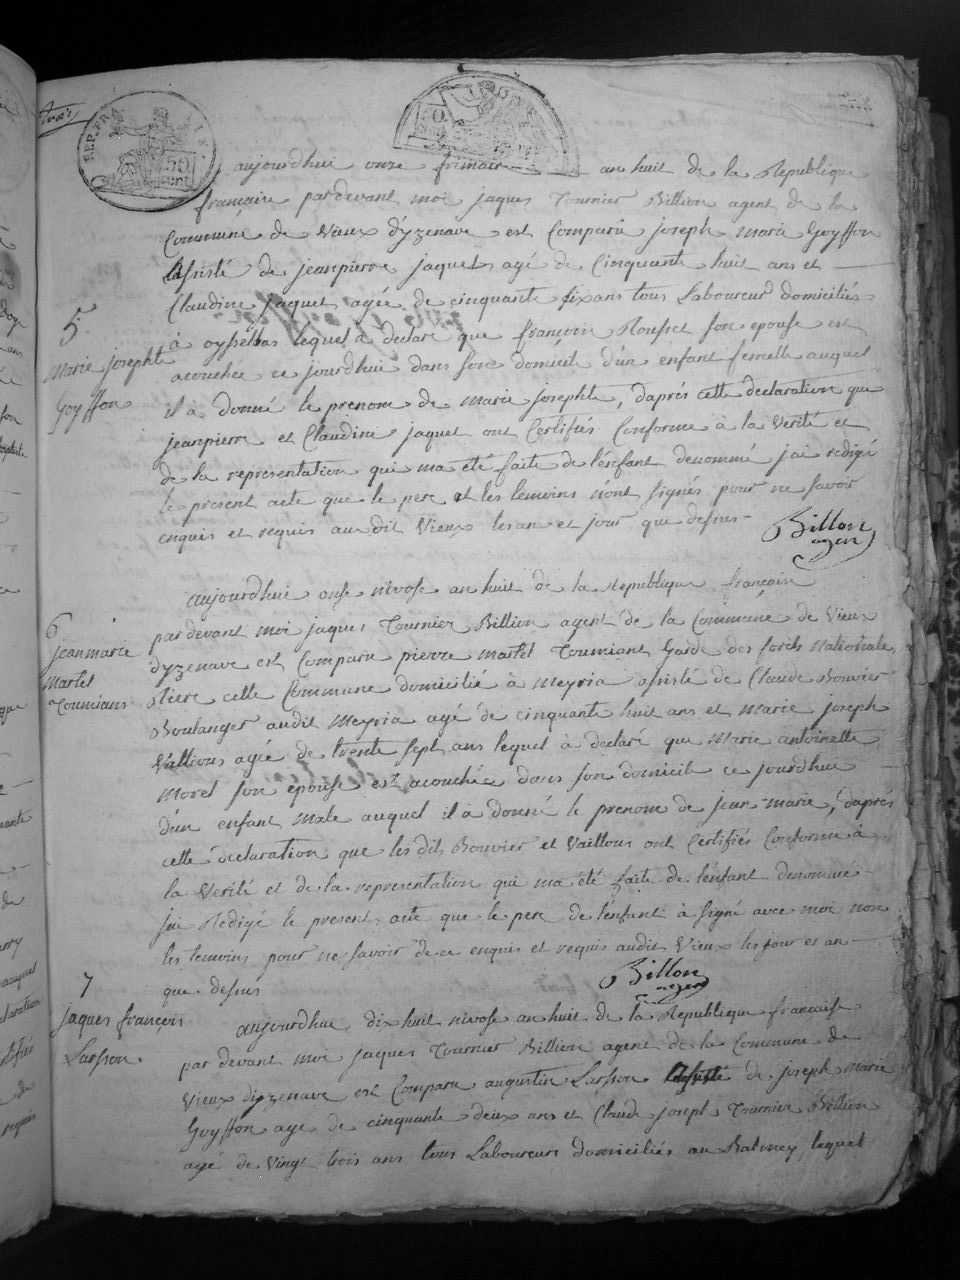 trois
REP. FRA
50
cent
50
aujourdhui onze frimaire an huit de la Republique
françaire pardevant moi jaques Tournier Billion agent de la
Commune de Vieux dyzenave est Comparû joseph marie Goyffon
Assisté de jeanpierre jaquet agé de Cinquante huit ans et
Claudine jaquet agée de cinquante six ans tous Laboureur domiciliés
à oysellas lequel à declaré que françoise Rousset son epouse est
acouchée ce jourdhui dans son domicil d'un enfant femelle auquel
il à donné le prenom de marie josephte, daprés cette declaration que
jeanpierre et Claudine jaquet ont Certifiés Conforme à la Verité et
de la representation qui ma été faite de l'enfant denommé jai redigé
le present acte que le pere et les temoins n'ont signés pour ne savoir
enquis et requis audit Vieux les an et jour que desus
5
Marie josephte
Goyffon
Billon
agent
aujourdhui onse nivose an huit de la Republique françoise
pardevant moi jaques Tournier Billion agent de la Commune de Vieux
dyzenave est Comparu pierre martet Toumians Garde des forets nationale
Riere cette Commune domicilié à Meyria assisté de Claude Bouvier
Boulanger audit Meyria agé de cinquante huit ans et Marie joseph
Vaillous agée de trente sept ans lequel à declaré que Marie antoinette
Morel son epouse est acouchée dans son domicil ce jourdhui
d'un enfant male auquel il à donné le prenom de jean-marie, daprés
cette declaration que les dits Bouvier et Vaillous ont Certifiés Conforme à
la Verité et de la representation qui ma été faite de l'enfant denommé
jai Redigé le present acte que le pere de l'enfant à signé avec moi non
les temoins pour ne savoir de ce enquis et requis audit Vieux les jour et an
que desus
6
jean marie
Martet
Toumians
Billon
agent
7
jaques françois
Larsson
aujourdhui dix huit nivose an huit de la Republique francaise
par devant moi jaques Tournier Billion agent de la Commune de
Vieux dizenave est Comparu augustin Larsson Assisté de joseph marie
Goyffon age de cinquante deux ans et Claude joseph Tournier Billion
agé de Vingt trois ans tous Laboureurs domiciliés au Balmey lequel